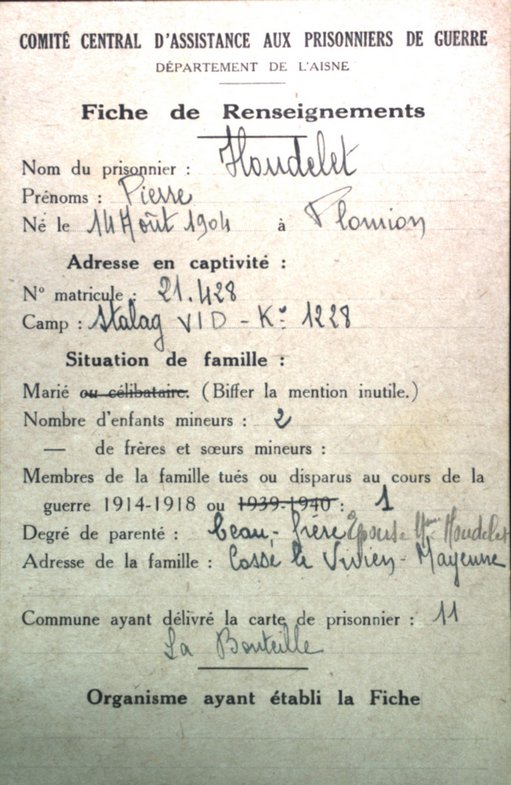 COMITÉ CENTRAL D'ASSISTANCE AUX PRISONNIERS DE GUERRE
DÉPARTEMENT DE L'AISNE
Fiche de Renseignements
Nom du prisonnier : Houdelet
Prénoms : Pierre
Né le 14 Août 1904 à Plomion
Adresse en captivité :
N° matricule : 21.428
Camp : Stalag VI D - K° 1228
Situation de famille :
Marié ou célibataire. (Biffer la mention inutile.)
Nombre d'enfants mineurs : 2
— de frères et sœurs mineurs :
Membres de la famille tués ou disparus au cours de la
guerre 1914-1918 ou 1939-1940 : 1
Degré de parenté : beau-frère Epouse Mme Houdelet
Adresse de la famille : Cossé le Vivien - Mayenne
Commune ayant délivré la carte de prisonnier : 11
La Bouteille
Organisme ayant établi la Fiche